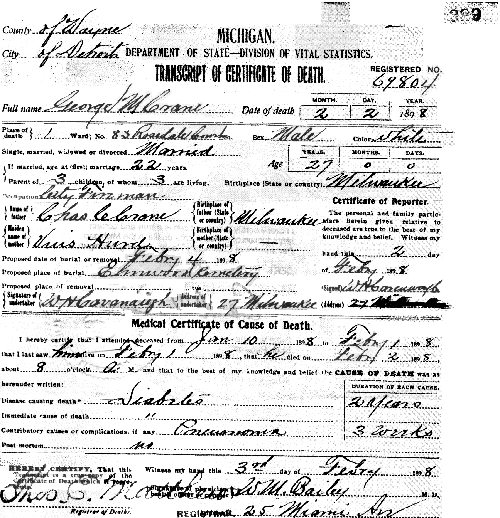 County of Wayne
MICHIGAN.
City of Detroit
DEPARTMENT OF STATE—DIVISION OF VITAL STATISTICS.
TRANSCRIPT OF CERTIFICATE OF DEATH.
REGISTERED NO. 67804
Full name George M Crane Date of death MONTH. 2 DAY. 2 YEAR. 1898
Place of death 1 Ward; No. 83 Sex, Male Color, White
Single, married, widowed or divorced Married Age YEARS. 27 MONTHS. 0 DAYS. 0
If married, age at (first) marriage, 22 years
Parent of 3 children, of whom 3 are living. Birthplace (State or country) Milwaukee
Occupation City Fireman
Name of father Chas C Crane Birthplace of father (State or country) Milwaukee
Maiden name of mother Hurd Birthplace of mother (State or country)
Proposed date of burial or removal Febry 4 1898
Proposed place of burial Elmwood Cemetery
Proposed place of removal
Signature of undertaker W H Cavanaugh Address of undertaker 27 Milwaukee
Certificate of Reporter.
The personal and family particulars herein given relative to deceased are true to the best of my knowledge and belief. Witness my
hand this 2 day
of Febry 1898
(Signed) W H Cavanaugh
(Address) 27 Milwaukee
Medical Certificate of Cause of Death.
I hereby certify that I attended deceased from Jan 10 1898 to Febry 1 1898
that I last saw him alive on Febry 1 1898, that he died on Febry 2 1898
about 8 o'clock A. M. and that to the best of my knowledge and belief the CAUSE OF DEATH was as
hereunder written:
DURATION OF EACH CAUSE.
Disease causing death Diabetes 2 Years
Immediate cause of death "
Contributory causes or complications, if any Pneumonia 3 Weeks
Post mortem no
I HEREBY CERTIFY, That this
Witness my hand this 3rd day of Febry 1898
W M Bailey M. D.
Registrar of Deaths.
REGISTRAR. 25 Miami Av